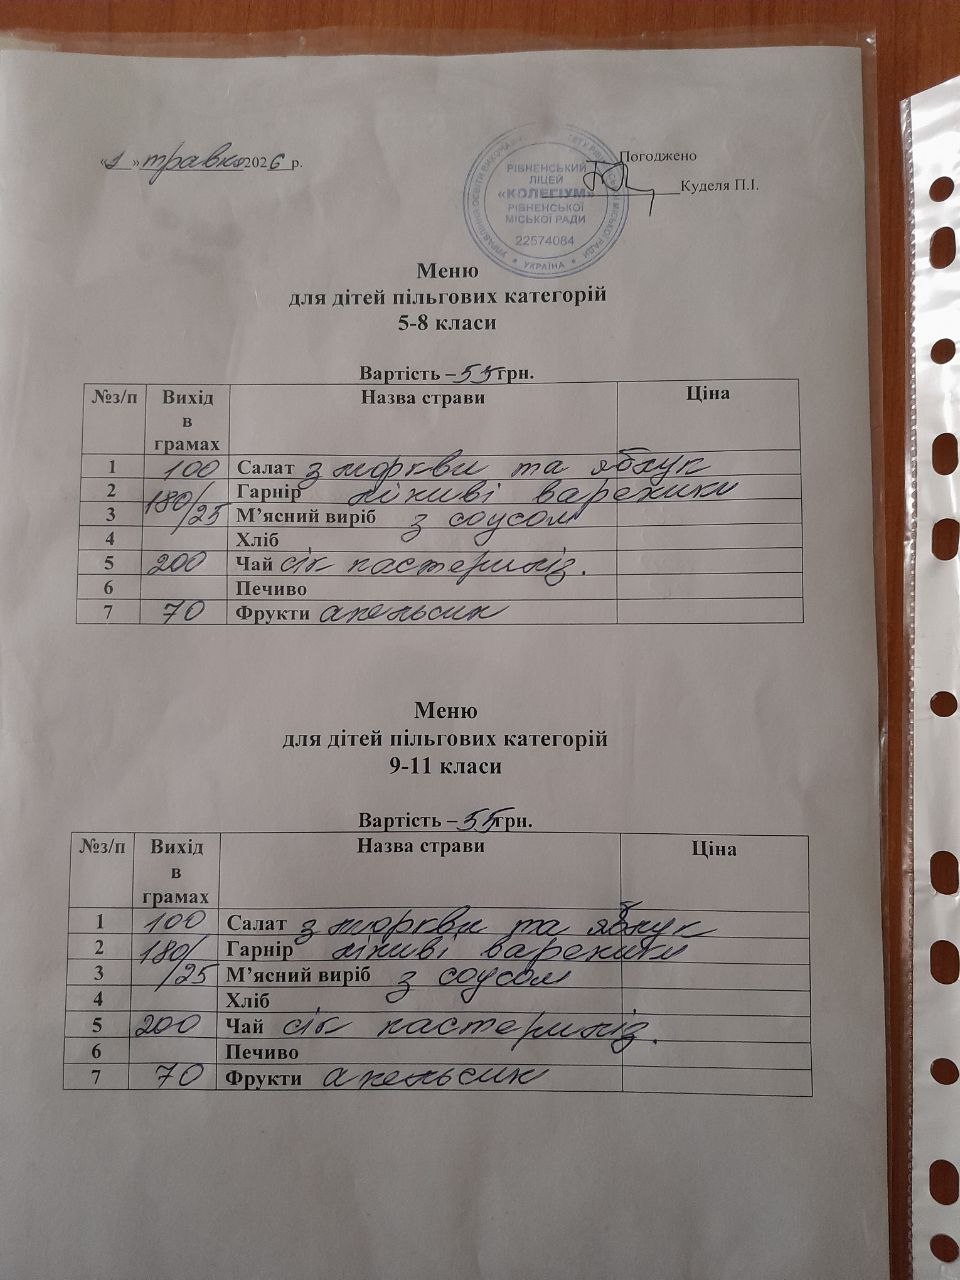 «1» травня 2026 р.
Погоджено
Куделя П.І.
РІВНЕНСЬКИЙ
ЛІЦЕЙ
«КОЛЕГІУМ»
РІВНЕНСЬКОЇ
МІСЬКОЇ РАДИ
22574084
УКРАЇНА
Меню
для дітей пільгових категорій
5-8 класи
Вартість – 55 грн.
№з/п Вихід в грамах Назва страви Ціна
1 100 Салат з моркви та яблук
2 180/25 Гарнір ліниві вареники
3 М’ясний виріб з соусом
4 Хліб
5 200 Чай сік пастериліз.
6 Печиво
7 70 Фрукти апельсин
Меню
для дітей пільгових категорій
9-11 класи
Вартість – 55 грн.
№з/п Вихід в грамах Назва страви Ціна
1 100 Салат з моркви та яблук
2 180/ Гарнір ліниві вареники
3 /25 М’ясний виріб з соусом
4 Хліб
5 200 Чай сік пастериліз.
6 Печиво
7 70 Фрукти апельсин